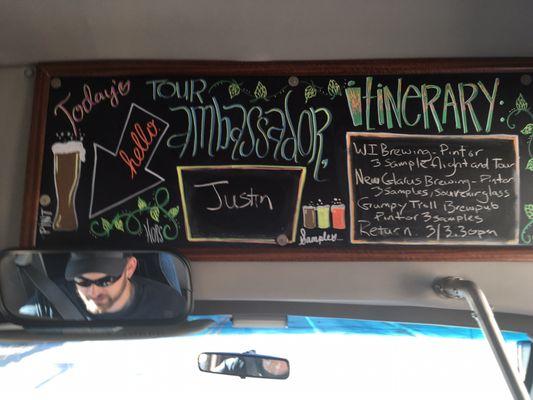 Today's
TOUR
ambassador:
hello
Justin
PINT
HOPS
Samples
itinerary:
WI Brewing - Pint or
3 sample flight and Tour
New Glarus Brewing - Pint or
3 samples, souvenir glass
Grumpy Troll Brewpub
Pint or 3 samples
Return: 3/3:30pm